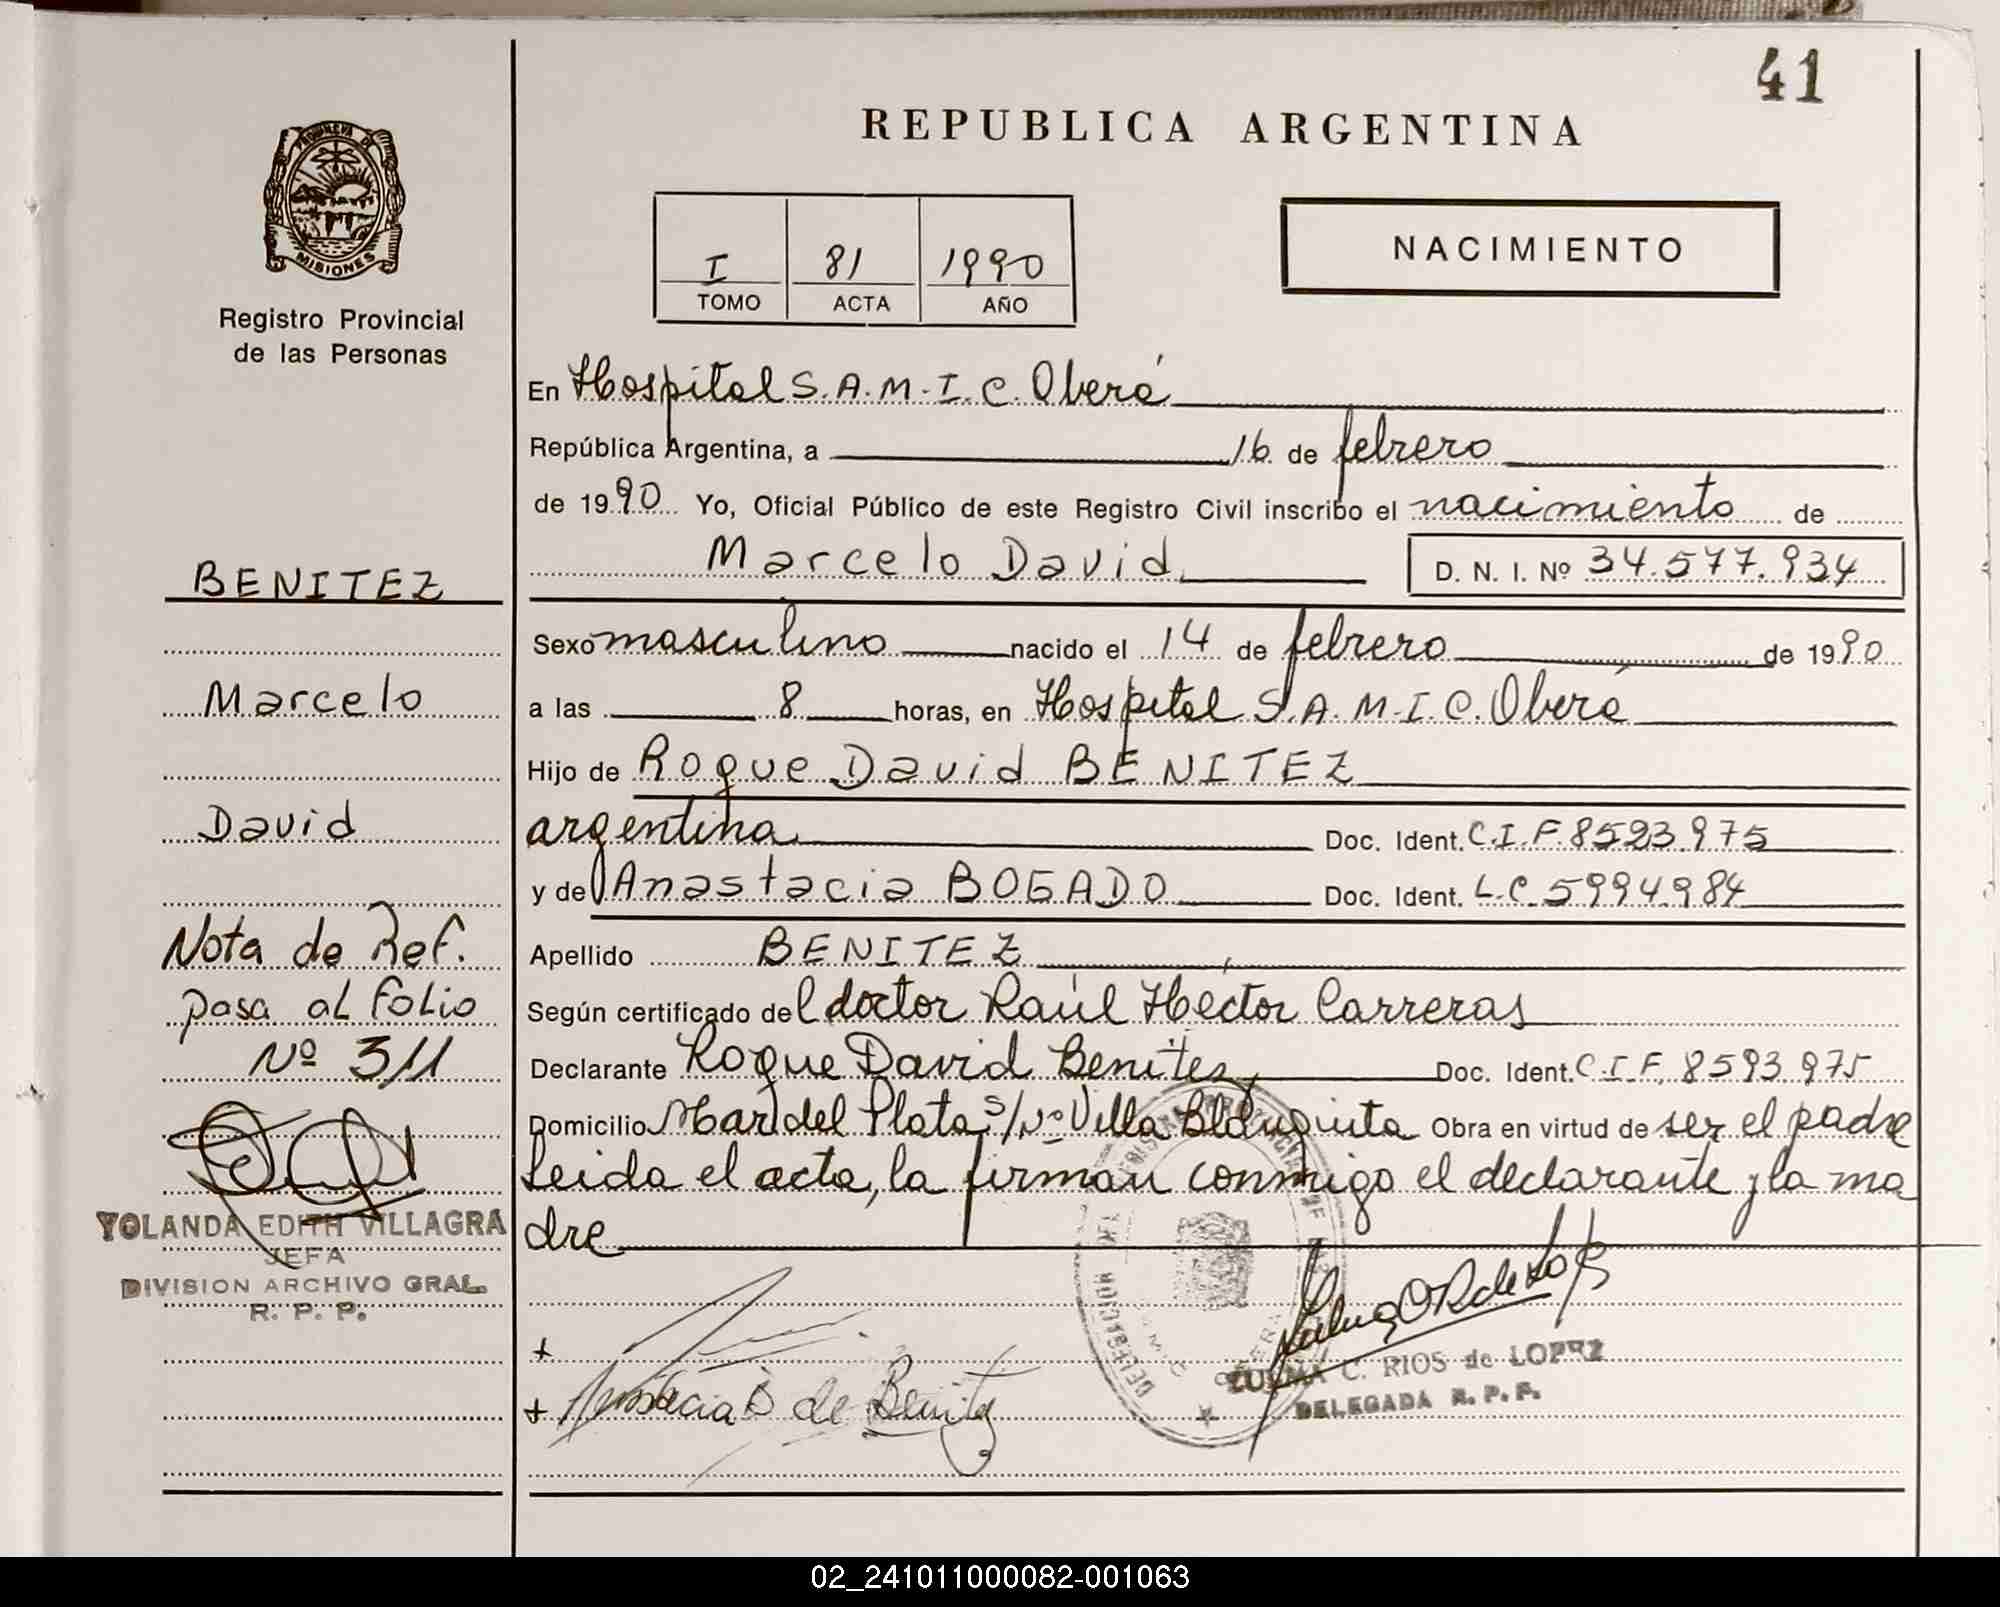 41
REPUBLICA ARGENTINA
PROVINCIA DE
MISIONES
Registro Provincial
de las Personas
I 81 1990
TOMO ACTA AÑO
NACIMIENTO
En Hospital S.A.M.I.C. Oberá
República Argentina, a 16 de febrero
de 1990 Yo, Oficial Público de este Registro Civil inscribo el nacimiento de
Marcelo David D. N. I. Nº 34.577.934
BENITEZ
Sexo masculino nacido el 14 de febrero de 1990
Marcelo
a las 8 horas, en Hospital S.A.M.I.C. Oberá
Hijo de Roque David BENITEZ
David
argentina Doc. Ident. C.I.F. 8593.975
y de Anastacia BOGADO Doc. Ident. L.C. 5994984
Nota de Ref.
Apellido BENITEZ
pasa al Folio
Según certificado del doctor Raúl Héctor Carreras
Nº 311
Declarante Roque David Benitez, Doc. Ident. C.I.F. 8593.975
Domicilio Mar del Plata s/Nº Villa Blanquita Obra en virtud de ser el padre
Leida el acta, la firman conmigo el declarante y la ma
dre
YOLANDA EDITH VILLAGRA
JEFA
DIVISION ARCHIVO GRAL.
R. P. P.
+
+ Anastacia B de Benitez
ZULMA C. RIOS de LOPEZ
DELEGADA R. P. P.
02_241011000082-001063